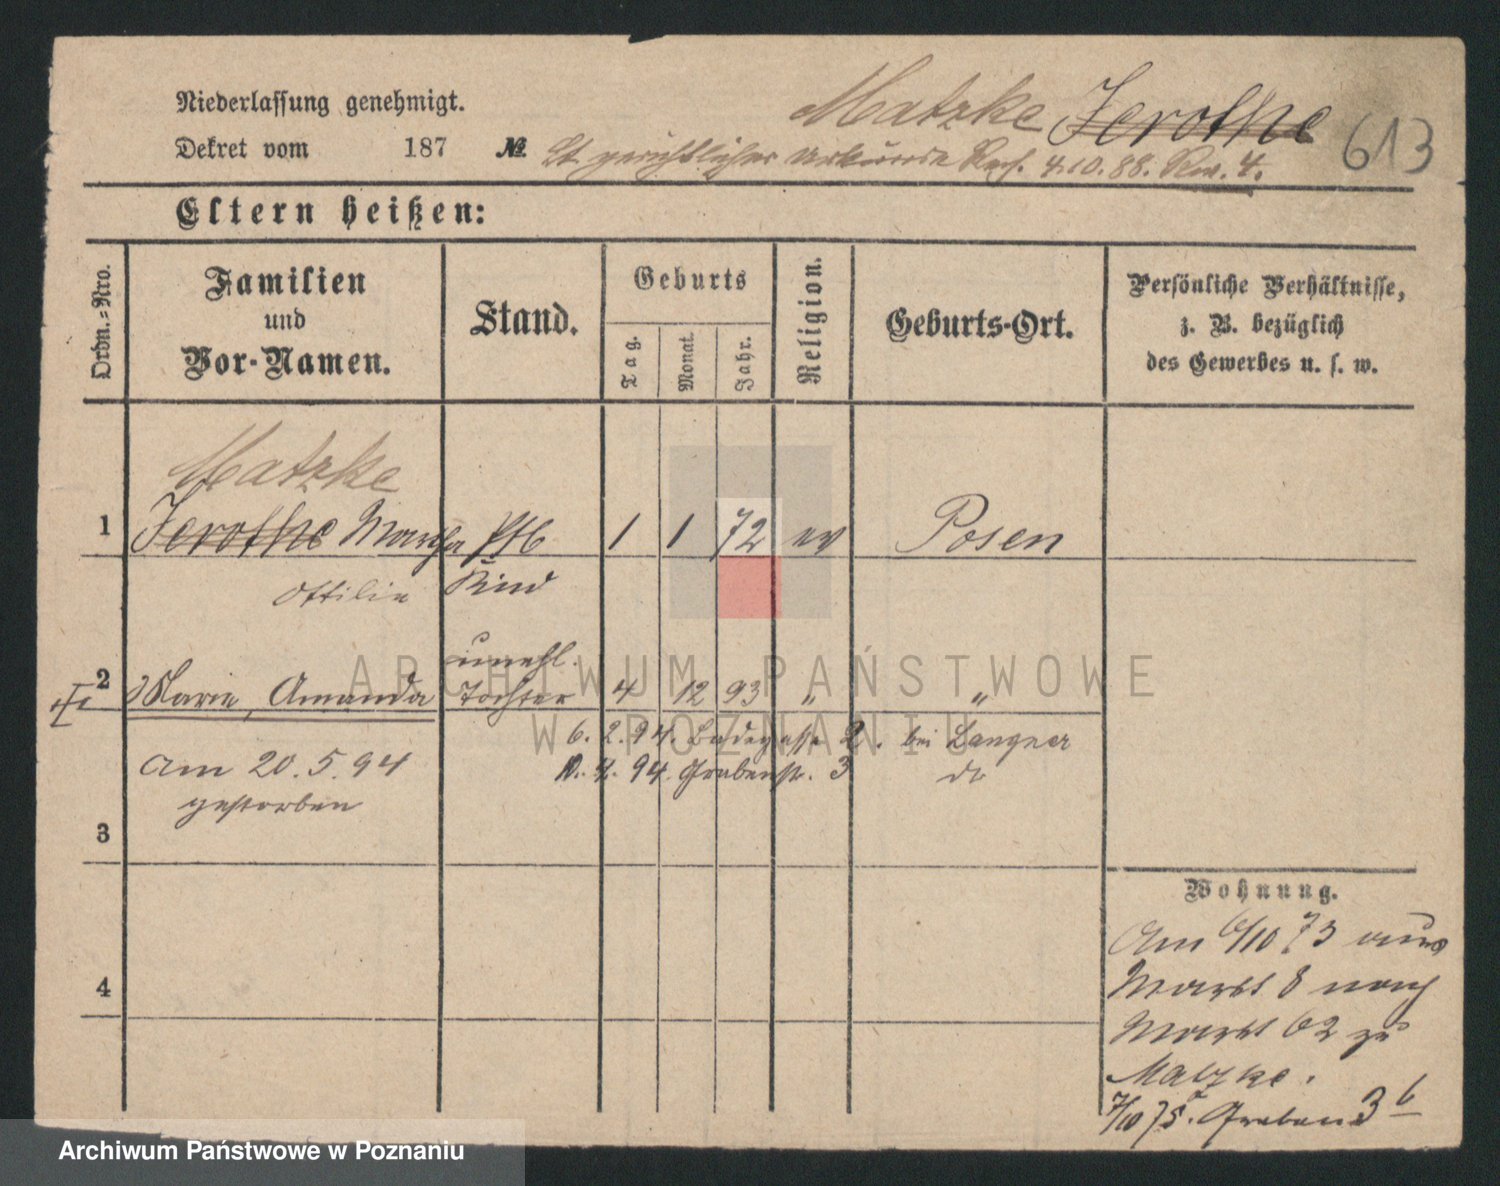 Niederlassung genehmigt.
Matzke Jerothe 613
Dekret vom 187 № Lt. gerichtlicher Urkunde 4.10.88.
Eltern heißen:
Ordn.-Nro.
Familien und Vor-Namen.
Stand.
Geburts
Tag.
Monat.
Jahr.
Religion.
Geburts-Ort.
Persönliche Verhältnisse,
z. B. bezüglich
des Gewerbes u. s. w.
Matzke
1 Jerothe Martha Pfl 1 1 72 ev Posen
Ottilie Kind
unehl.
2 Marie, Amanda Tochter 4 12 93 " "
6. 2. 94. Badegasse 2. bei Langner
Am 20.5.94 4. 94. Grabenstr. 3 do
gestorben
3
4
Wohnung.
Am 6/10 73 aus
Markt 8 nach
Markt 62 zu
Matzke.
7/10 75. Graben 3b
ARCHIWUM PAŃSTWOWE
W POZNANIU
Archiwum Państwowe w Poznaniu